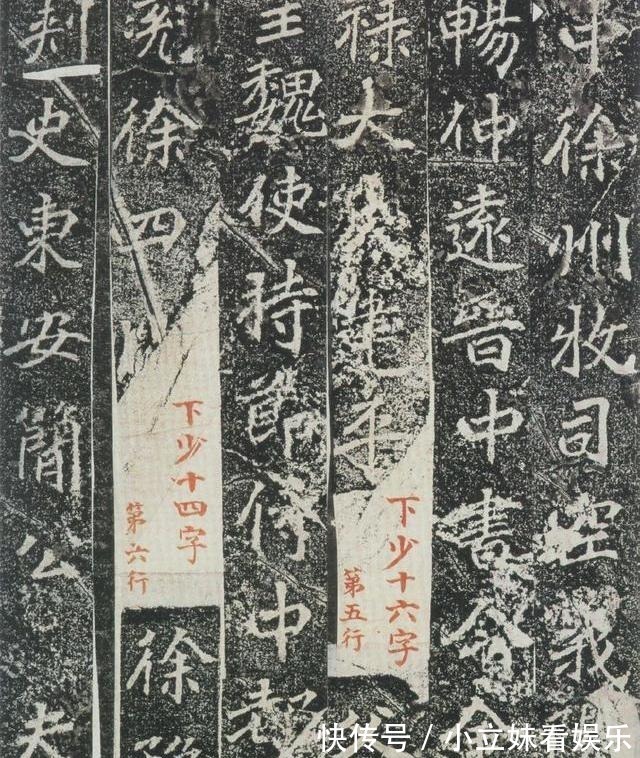 中徐州牧司空義
暢仲遠晉中書令金
祿大夫建平
下少十六字
第五行
公
皇魏使持節侍中都
兖徐四州
下少十四字
第六行
徐豫
刺史東安簡公夫
快传号 / 小立妹看娱乐